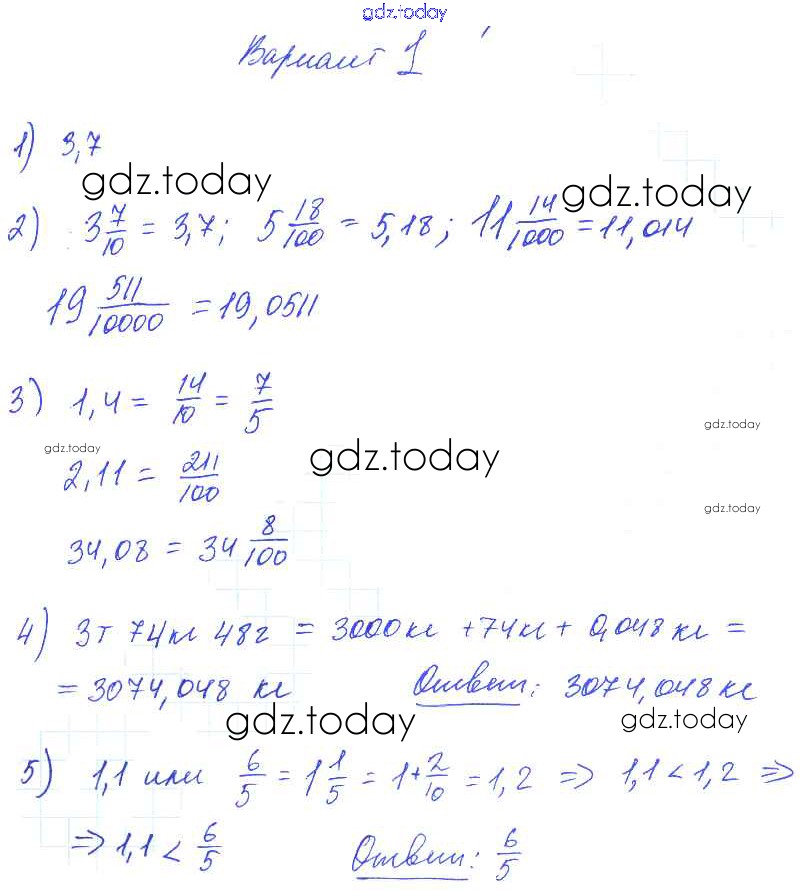 gdz.today
Вариант 1
1) 3,7
gdz.today gdz.today
2) 3 7/10 = 3,7; 5 18/100 = 5,18; 11 14/1000 = 11,014
19 511/10000 = 19,0511
3) 1,4 = 14/10 = 7/5
gdz.today
gdz.today gdz.today
2,11 = 211/100
gdz.today
34,08 = 34 8/100
4) 3т 74кг 48г = 3000кг + 74кг + 0,048 кг =
= 3074,048 кг Ответ: 3074,048 кг
gdz.today gdz.today
5) 1,1 или 6/5 = 1 1/5 = 1 + 2/10 = 1,2 => 1,1 < 1,2 =>
=> 1,1 < 6/5 Ответ: 6/5